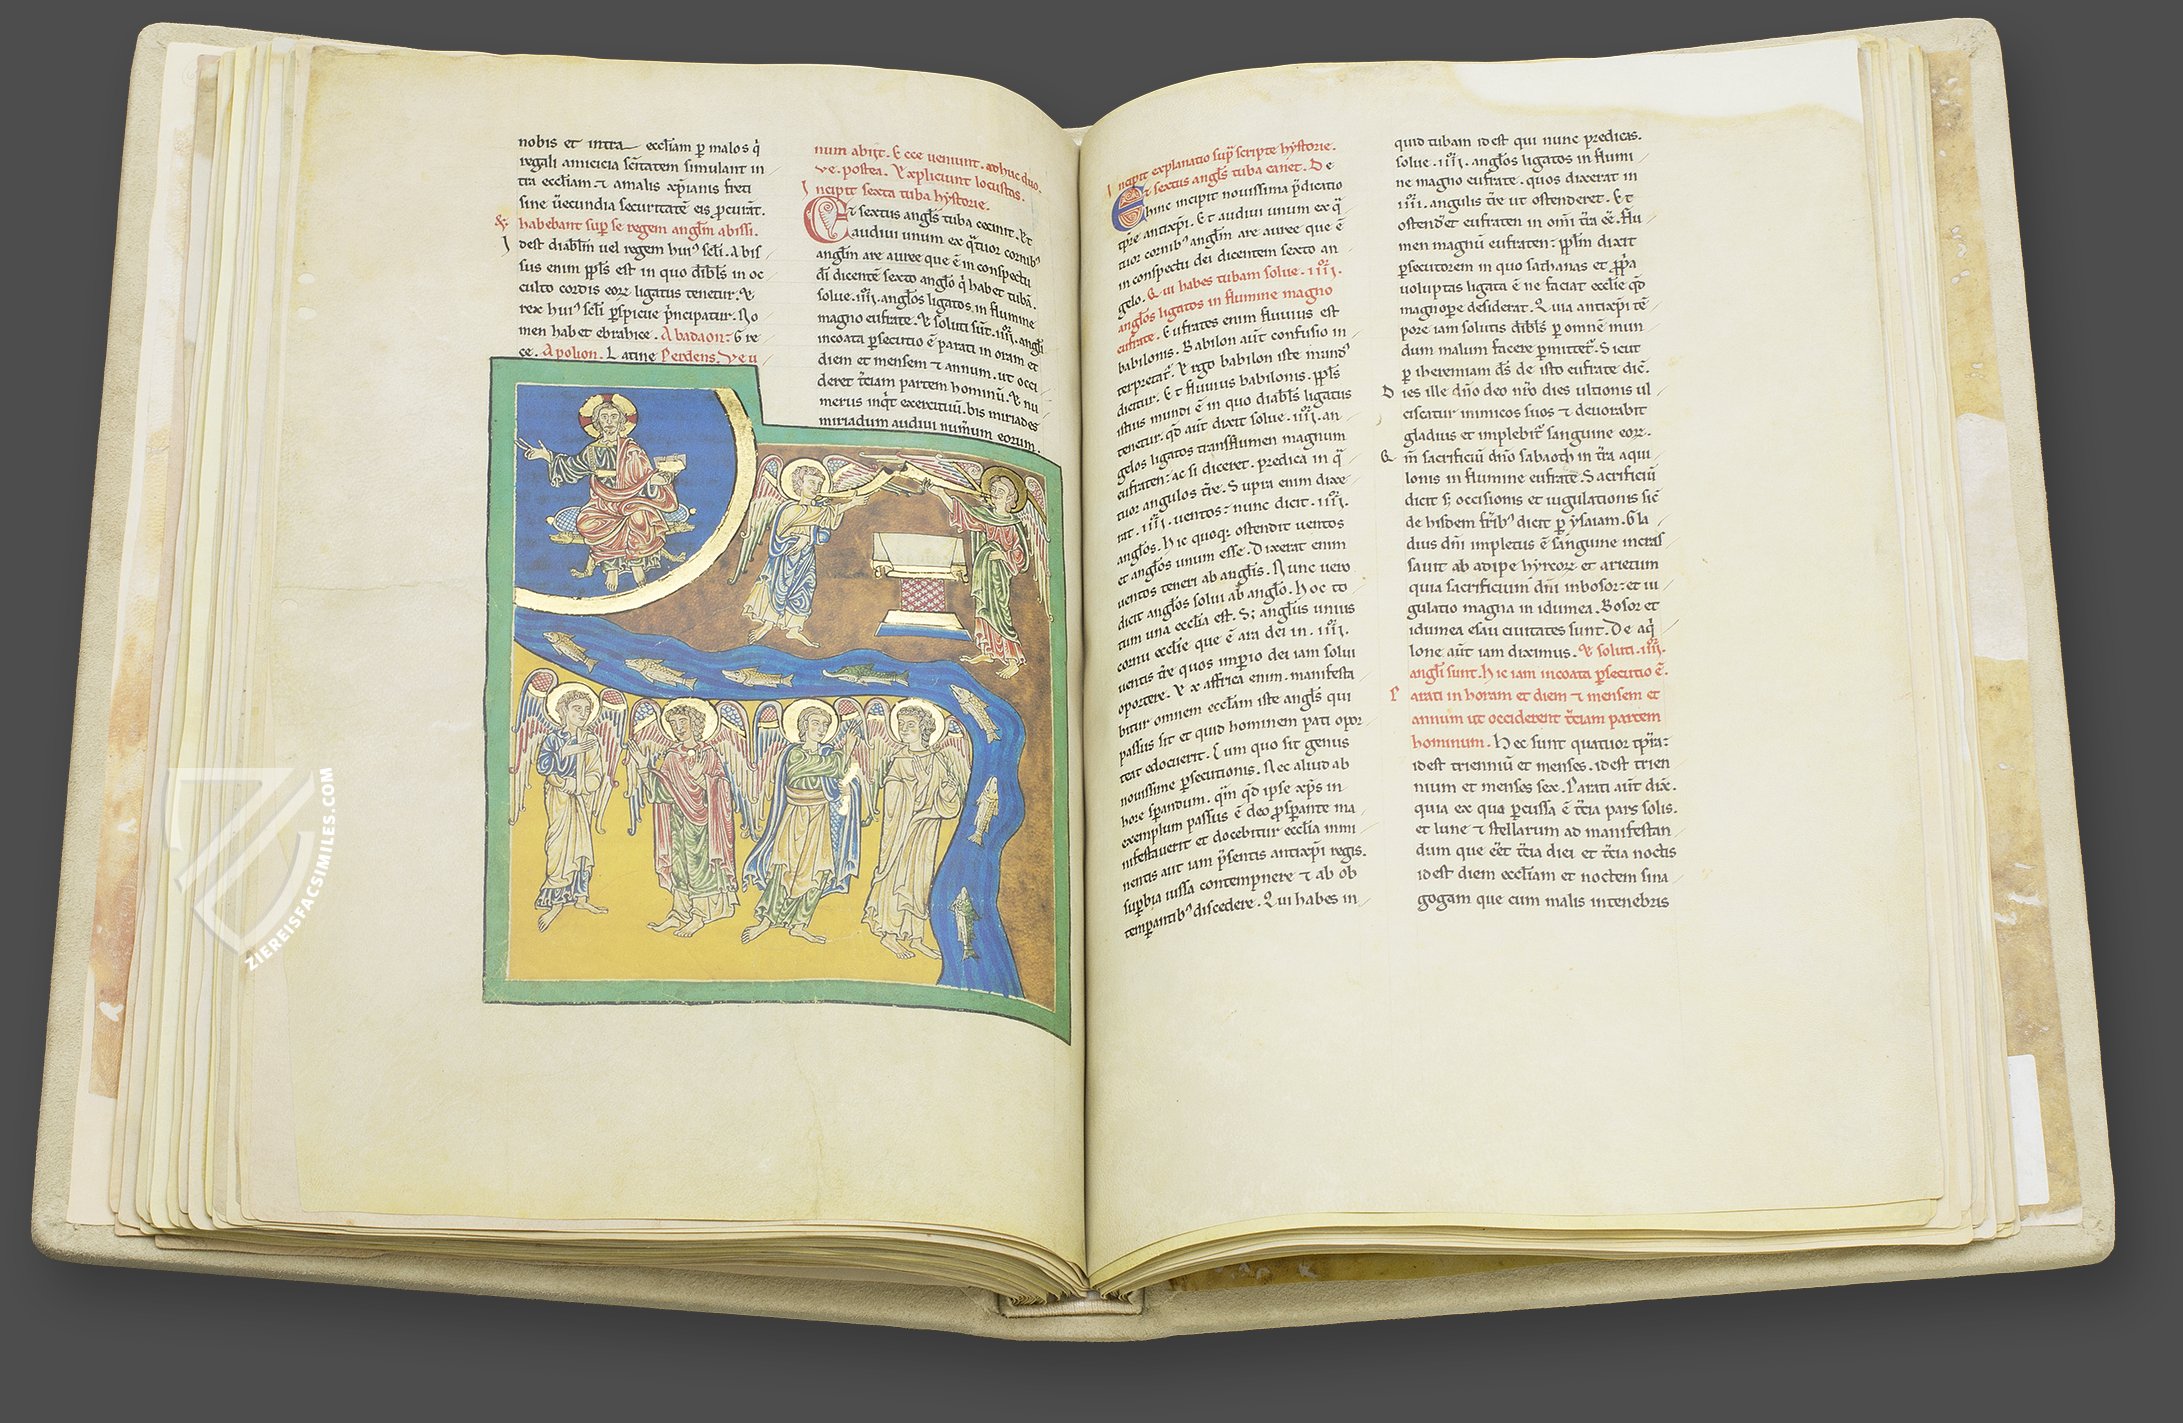 nobis et intra eccłiam ꝑ malos q̇
regali amicicia sc̄itatem simulant in
tra eccłiam ⁊ amalis xp̄ianis freti
sine ūecundia securitatē eis ꝓcurāt.
& habebant suꝑ se regem angłm abissi.
I dest diabłm uel regem hui᾽ scłi. Abis
sus enim ppłs est in quo diabłs in oc
culto cordis eoꝝ ligatus tenetur. &
rex hui᾽ scłi ꝑspicue p̄ncipatur. No
men habet ebraice. Abadaon: Gre
ce. Apolion. Latine Perdens. Ve u
num abiit. Ecce ueniunt. adhuc duo.
ve. postea. Expliciunt locustas.
Incipit sexta tuba hystorie.
Et sextus angłs tuba cecinit. Et
audiui unum ex q̄tuor cornib᾽
angłm are auree que ē in conspectu
dī dicentē sexto angło q̇ habet tubā.
solue .IIIIor. angłos ligatos in flumine
magno eufrate. & soluti sūt .IIIIor. angłi
incoata ꝑsecutio ē parati in oram et
diem et mensem ⁊ annum. ut occi
deret t̄ciam partem hominū. & nu
merus inq̄t exercituū. bis miriades
miriadum audiui num̄um eorum.
Incipit explanatio sup̄scripte hystorie.
Et sextus angłs tuba canet. De
hinc incipit nouissima p̄dicatio
tp̄re antixp̄i. Et audiui unum ex q̄
tuor cornib᾽ angłm are auree que ē
in conspectu dei dicentem sexto an
gelo. Qui habes tubam solue. IIIIor.
angłos ligatos in flumine magno
eufrate. Eufrates enim fluuius est
babilonis. Babilon aūt confusio in
terpretat᾽. Ergo babilon iste mund᾽
dicitur. Et fluuius babilonis. ppłs
istius mundi ē in quo diabłs ligatus
tenetur. qd aūt dixit solue. IIIIor. an
gelos ligatos trans flumen magnum
eufraten: ac si diceret. predica in q̄
tuor angulos t̄re. Supra enim dixe
rat. IIIIor. uentos: nunc dicit. IIIIor.
angłos. Hic quoq; ostendit uentos
et angłos unum esse. Dixerat enim
uentos teneri ab angłis. Nunc uero
dicit angłos solui ab angło. Hoc to
tum una eccłia est. S; angłus unius
cornu eccłie que ē ara dei in. IIIIor.
uentis t̄re quos imꝑio dei iam solui
oportere. Ex affrica enim manifesta
bitur omnem eccłam iste angłs qui
passus sit et quid hominem pati opor
teat edocuerit. Cum quo sit genus
nouissime ꝑsecutionis. Nec aliud ab
hore sꝑandum. q̄m qd ipse xp̄s in
exemplum passus ē deo ꝓsꝑante ma
nifestauerit et docebitur eccłia immi
nentis aut iam p̄sentis antixp̄i regis.
suꝑbia iussa contempnere ⁊ ab ob
temꝑantib᾽ discedere. Qui habes in
quid tubam idest qui nunc predicas.
solue .IIIIor. angłos ligatos in flumi
ne magno eufrate. quos dixerat in
IIIIor. angulis t̄re ut ostenderet. Et
ostendet eufraten in om̄i t̄ra eē. Flu
men magnū eufraten: ppłm dixit
ꝑsecutorem in quo sathanas et ꝓpa
uoluptas ligata ē ne faciat eccłie qd
magnope desiderat. Quia antixp̄i tē
pore iam solutis diabłs ꝑ omnē mun
dum malum facere ꝑmittet᾽. Sicut
ꝑ iheremiam d̄s de isto eufrate dic̄.
Dies ille dn̄o deo nr̄o dies ultionis ul
ciscatur inimicos suos ⁊ deuorabit
gladius et implebit᾽ sanguine eoꝝ.
Q m̄ sacrificiū dn̄o sabaoth in t̄ra aqui
lonis in flumine eufrate. Sacrificiū
dicit s; occisionis et iugulationis sic̄
de hisdem fr̄ib᾽ dicit ꝑ ysaiam. Gla
dius dn̄i impletus ē sanguine incras
sauit ab adipe hyrcoꝝ et arietum
quia sacrificium dn̄i inbosor: et iu
gulatio magna in idumea. Bosor et
idumea esau ciuitates sunt. De aq̇
lone aūt iam diximus. & soluti .IIIIor.
angłi sunt. Hic iam incoata ꝑsecutio ē.
Parati in horam et diem ⁊ mensem et
annum ut occiderent t̄ciam partem
hominum. Hec sunt quatuor tp̄ra:
idest trienniū et menses. idest trien
nium et menses sex. Parati aūt dix̄.
quia ex qua ꝑcussa ē t̄cia pars solis.
et lune ⁊ stellarum ad manifestan
dum que eēt t̄cia diei et t̄cia noctis
idest diem eccłiam et noctem sina
gogam que cum malis intenebris
ZIEREISFACSIMILES.COM